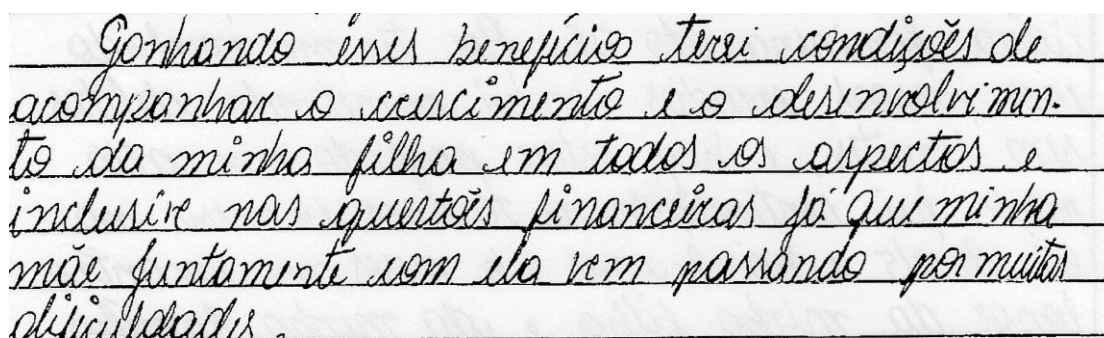 Ganhando esses benefício terei condições de
acompanhar o crescimento e o desenvolvimen-
to da minha filha em todos os aspectos e
inclusive nas questões financeiras já que minha
mãe juntamente com ela vem passando por muitas
dificuldades.